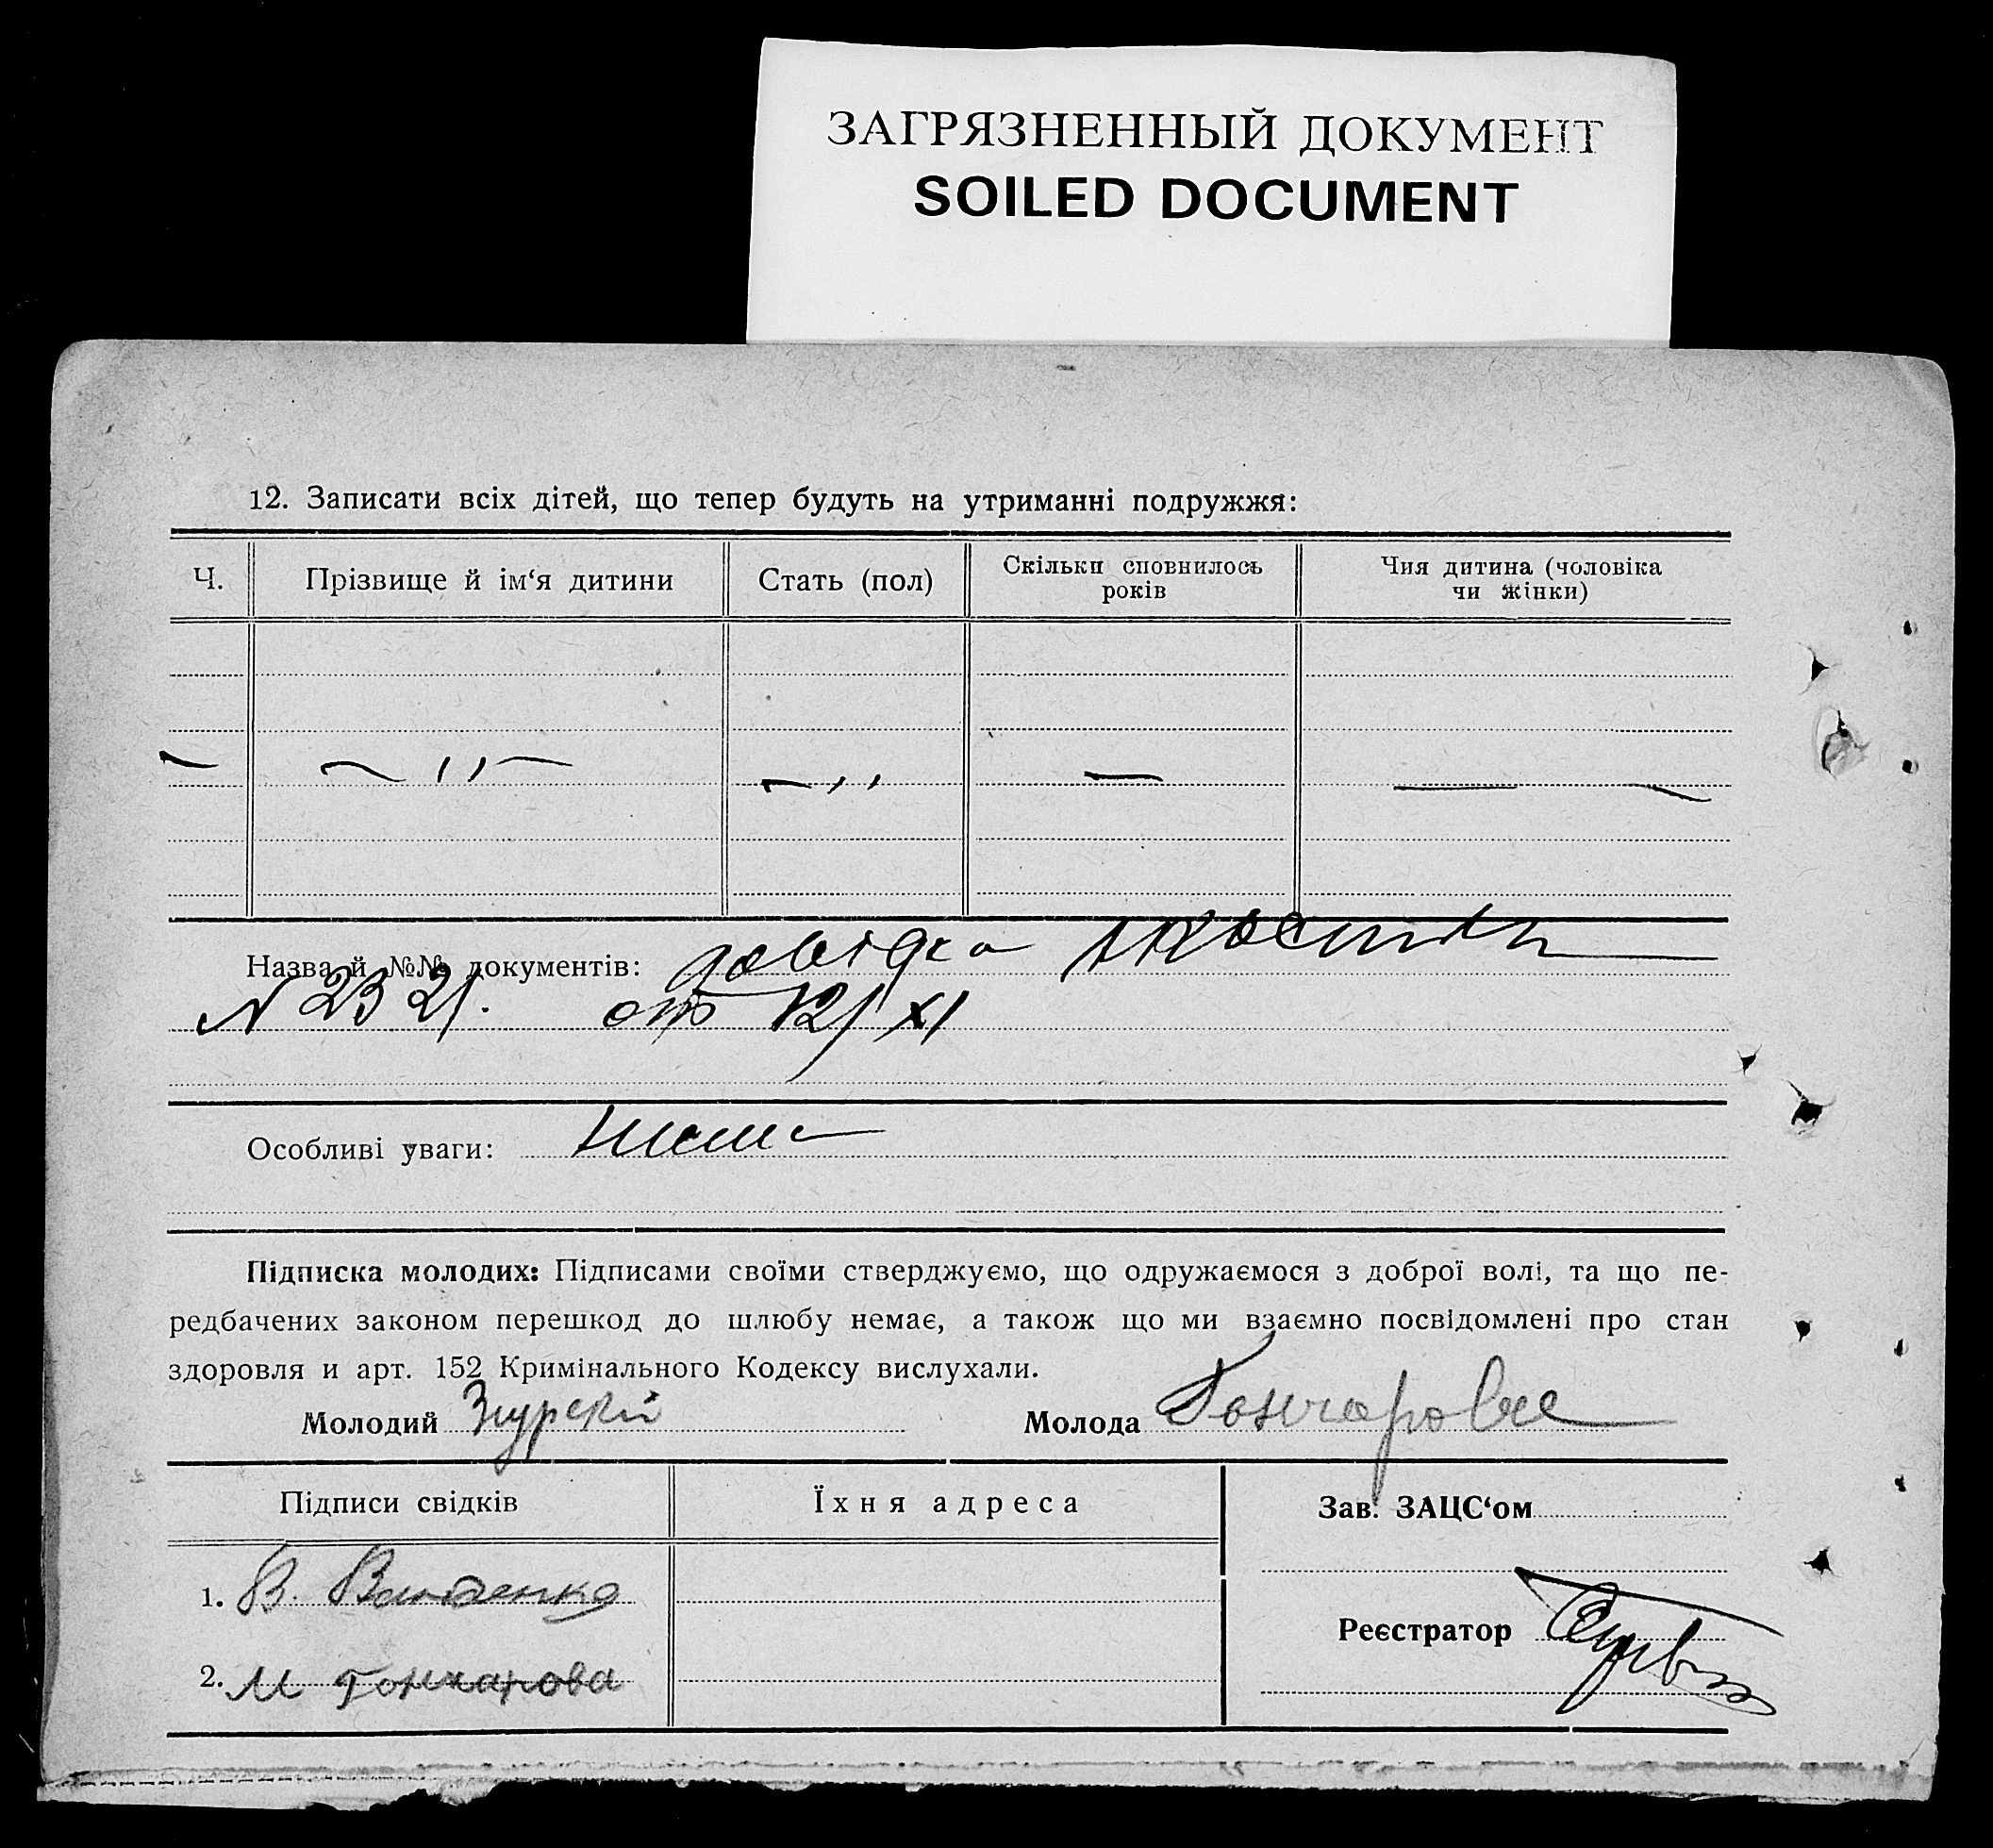 ЗАГРЯЗНЕННЫЙ ДОКУМЕНТ
SOILED DOCUMENT
12. Записати всіх дітей, що тепер будуть на утриманні подружжя:
Ч. Прізвище й ім‘я дитини Стать (пол) Скільки сповнилось років Чия дитина (чоловіка чи жінки)
Назва й №№ документів: довідка
N 2321. от 12/XI
Особливі уваги: нема
Підписка молодих: Підписами своїми стверджуємо, що одружаємося з доброї волі, та що пе-
редбачених законом перешкод до шлюбу немає, а також що ми взаємно посвідомлені про стан
здоровля и арт. 152 Кримінального Кодексу вислухали.
Молодий Згурский Молода Гончарова
Підписи свідків Їхня адреса Зав. ЗАЦС‘ом
1. В.
Реєстратор
2. М Гончарова